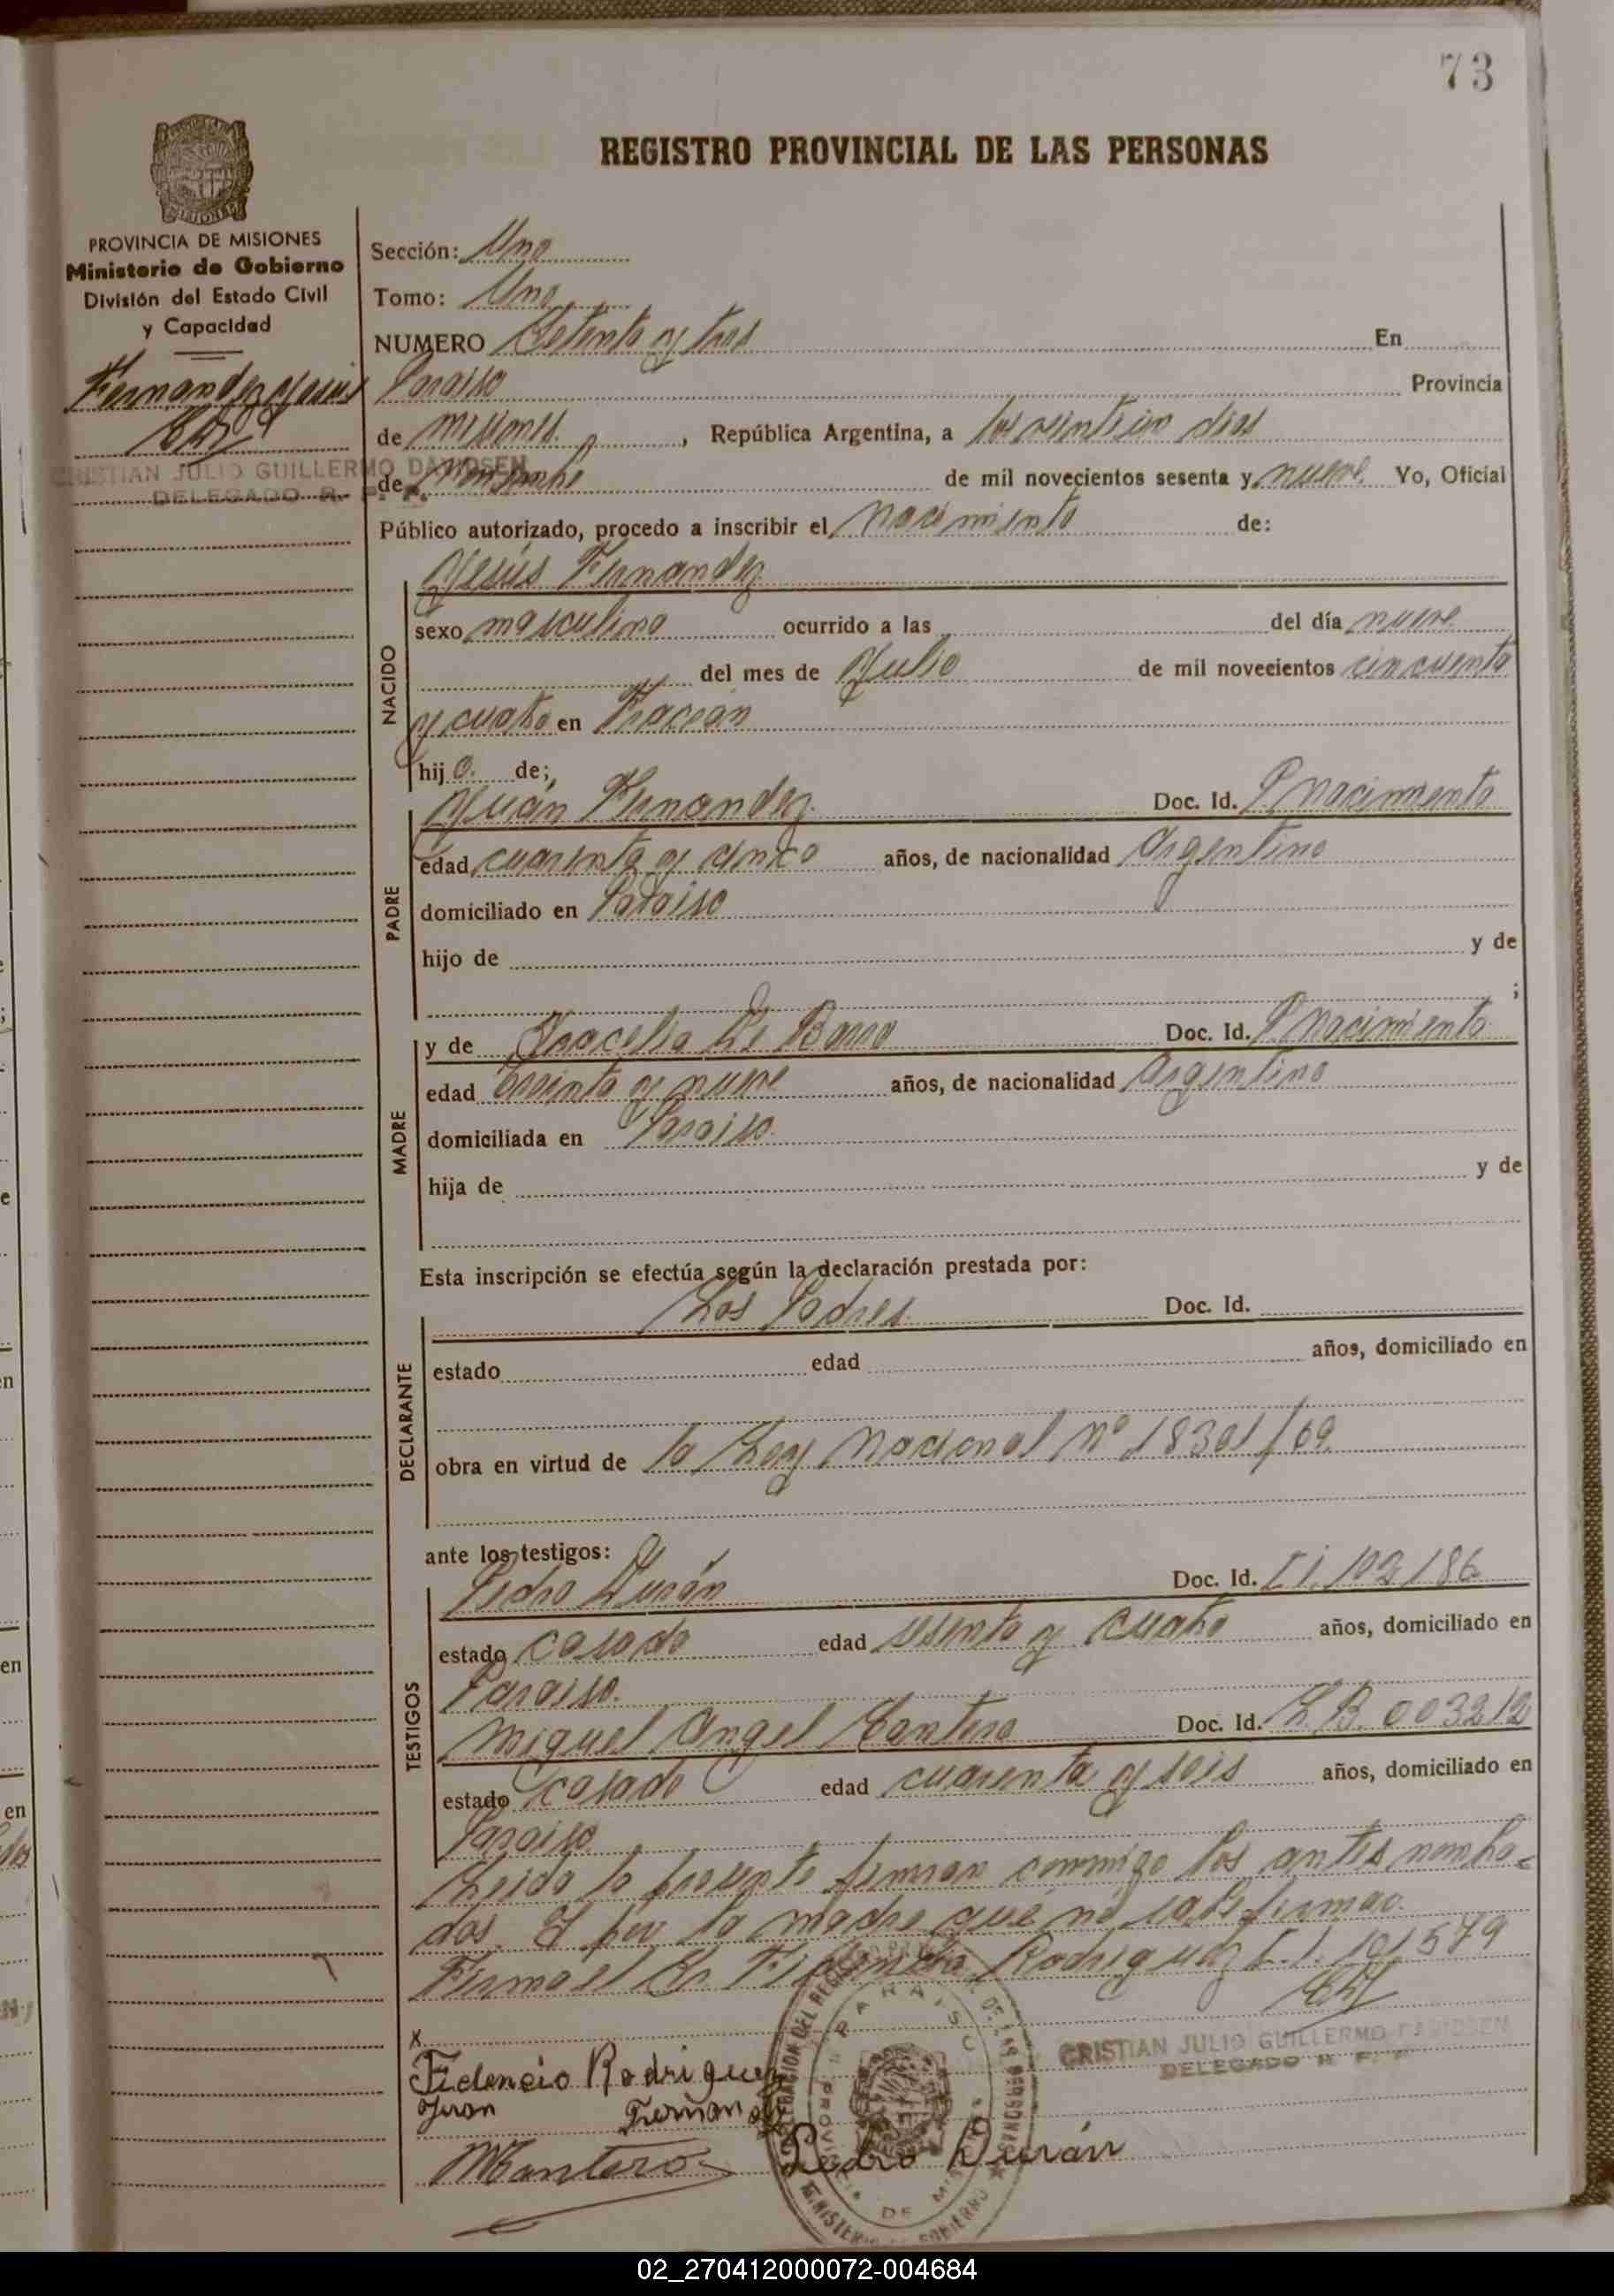 73
REGISTRO PROVINCIAL DE LAS PERSONAS
MISIONES
PROVINCIA DE MISIONES
Ministerio de Gobierno
División del Estado Civil
y Capacidad
Fernandez Jesús
CRISTIAN JULIO GUILLERMO DAVIDSEN
DELEGADO R. P. P.
Sección: Uno
Tomo: Uno
NUMERO Setenta y tres En
Paraiso Provincia
de Misiones, República Argentina, a los veintiun dias
de de mil novecientos sesenta y nueve. Yo, Oficial
Público autorizado, procedo a inscribir el Nacimiento de:
NACIDO
Jesús Fernandez
sexo masculino ocurrido a las del día nueve
del mes de Julio de mil novecientos cincuenta
y cuatro en Fracran
hijo de;
PADRE
Juán Fernandez Doc. Id. P nacimiento
edad cuarenta y cinco años, de nacionalidad Argentino
domiciliado en Paraiso
hijo de y de
;
MADRE
y de De Doc. Id. P nacimiento
edad treinta y nueve años, de nacionalidad Argentina
domiciliada en Paraiso
hija de y de
Esta inscripción se efectúa según la declaración prestada por:
DECLARANTE
Los Padres. Doc. Id.
estado edad años, domiciliado en
obra en virtud de la Ley Nacional nº 18301/69.
ante los testigos:
TESTIGOS
Pedro Durán Doc. Id. I.I. 102186
estado casado edad sesenta y cuatro años, domiciliado en
Paraiso.
Miguel Angel Santero Doc. Id. L.B. 003212
estado casado edad cuarenta y seis años, domiciliado en
Paraiso
Leida la presente firman conmigo los antes nombra-
dos. Y por la madre que no sabe firmar.
Firma el Sr. Fidencio Rodriguez I.I. 101579
x
CRISTIAN JULIO GUILLERMO DAVIDSEN
DELEGADO R. P. P.
Fidencio Rodriguez
Juan Fernandez
MSantero
Pedro Durán
PARAISO
PROVINCIA DE MISIONES
MINISTERIO DE GOBIERNO
02_270412000072-004684